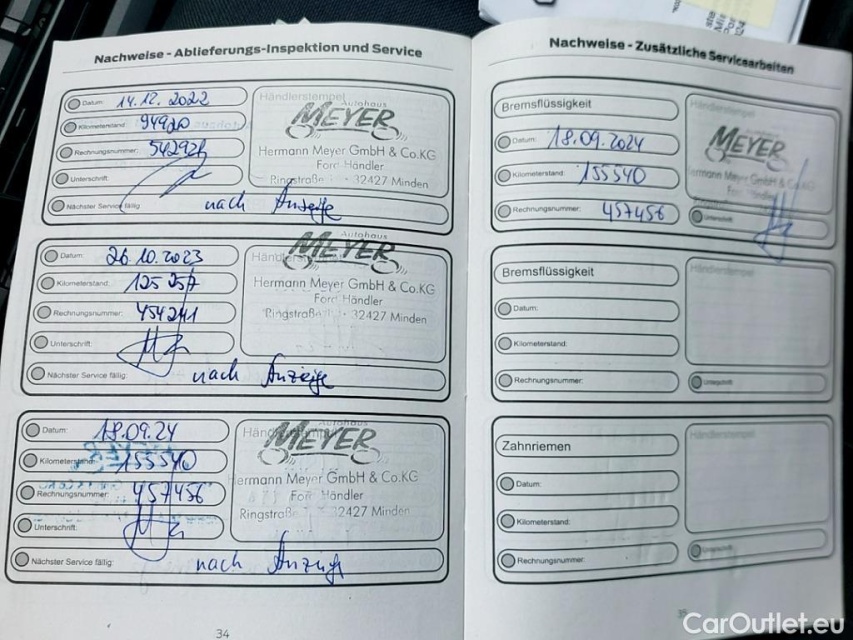 Nachweise - Ablieferungs-Inspektion und Service
Datum: 14.12.2022
Kilometerstand: 94920
Rechnungsnummer:
Unterschrift:
Nächster Service fällig: nach Anzeige
Händlerstempel
Autohaus
MEYER
Hermann Meyer GmbH & Co.KG
Ford Händler
Ringstraße 32427 Minden
Datum: 26.10.2023
Kilometerstand: 125257
Rechnungsnummer: 454241
Unterschrift:
Nächster Service fällig: nach Anzeige
Autohaus
MEYER
Hermann Meyer GmbH & Co.KG
Ford Händler
Ringstraße 32427 Minden
Datum: 18.09.24
Kilometerstand: 155540
Rechnungsnummer: 457456
Unterschrift:
Nächster Service fällig: nach Anzeige
Autohaus
MEYER
Hermann Meyer GmbH & Co.KG
Ford Händler
Ringstraße 32427 Minden
34
Nachweise - Zusätzliche Servicearbeiten
Bremsflüssigkeit
Datum: 18.09.2024
Kilometerstand: 155540
Rechnungsnummer: 457456
Händlerstempel
MEYER
Hermann Meyer GmbH & Co.KG
Ford Händler
32427 Minden
Unterschrift
Bremsflüssigkeit
Datum:
Kilometerstand:
Rechnungsnummer:
Händlerstempel
Unterschrift
Zahnriemen
Datum:
Kilometerstand:
Rechnungsnummer:
Händlerstempel
Unterschrift
35
CarOutlet.eu